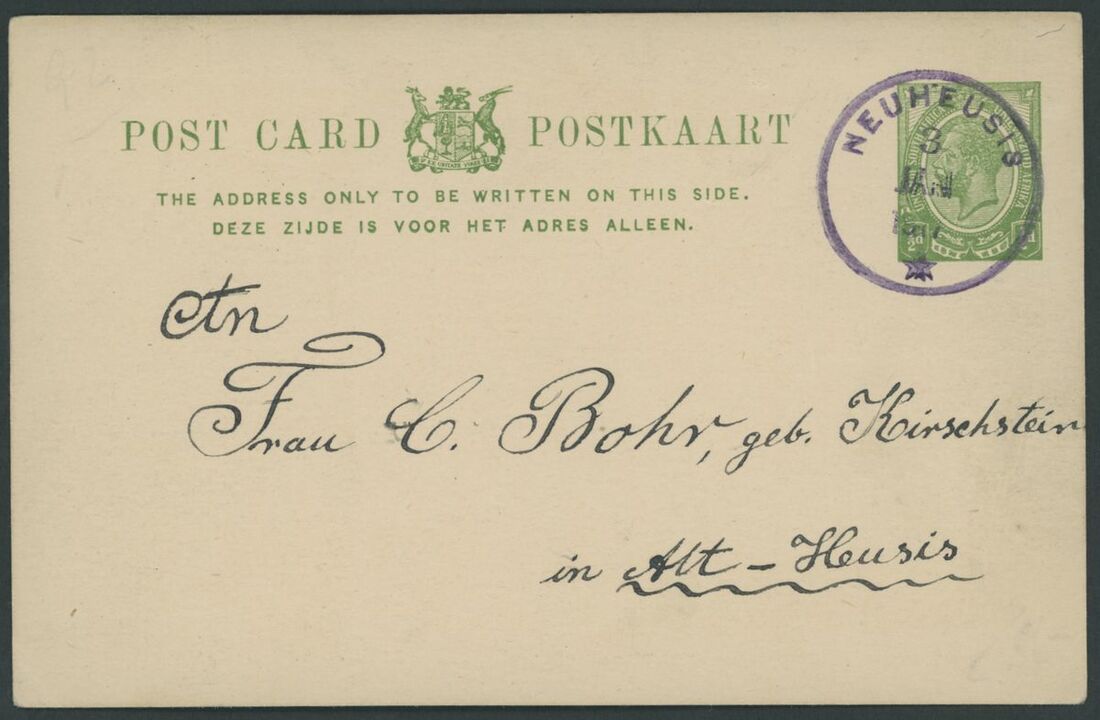 POST CARD POSTKAART
THE ADDRESS ONLY TO BE WRITTEN ON THIS SIDE.
DEZE ZIJDE IS VOOR HET ADRES ALLEEN.
NEUHEUSIS
3
JAN
An
Frau C. Bohr, geb. Kirschstein
in Alt-Heusis